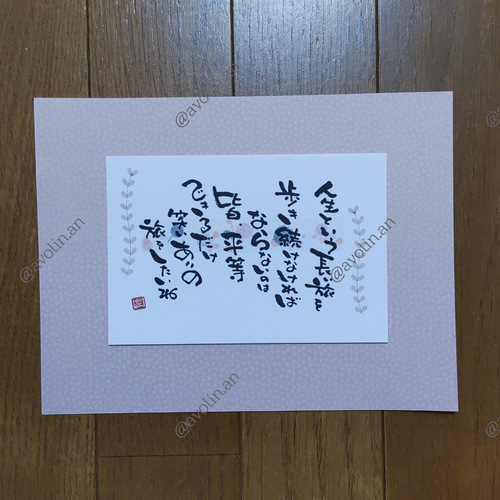 人生という長い旅を
歩き続けなければ
ならないのは
皆 平等
できるだけ
笑いありの
旅をしたいね
@avolin.an
@avolin.an
@avolin.an
@avolin.an